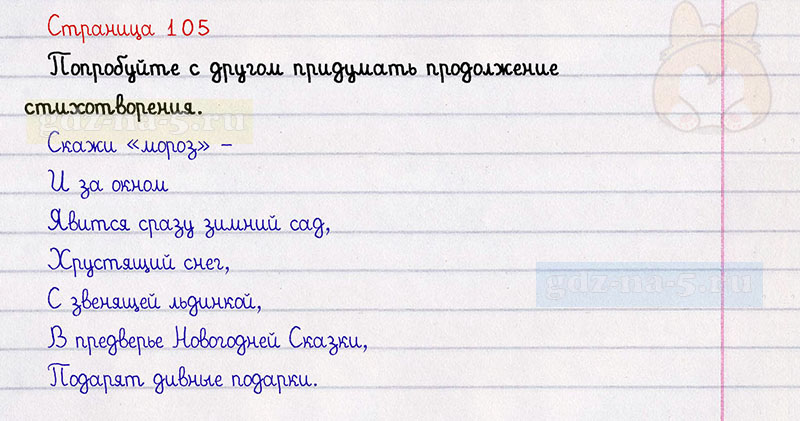 Страница 105
Попробуйте с другом придумать продолжение
стихотворения.
gdz-na-5.ru
Скажи «мороз» –
И за окном
Явится сразу зимний сад,
Хрустящий снег,
gdz-na-5.ru
С звенящей льдинкой,
В предверье Новогодней Сказки,
Подарят дивные подарки.